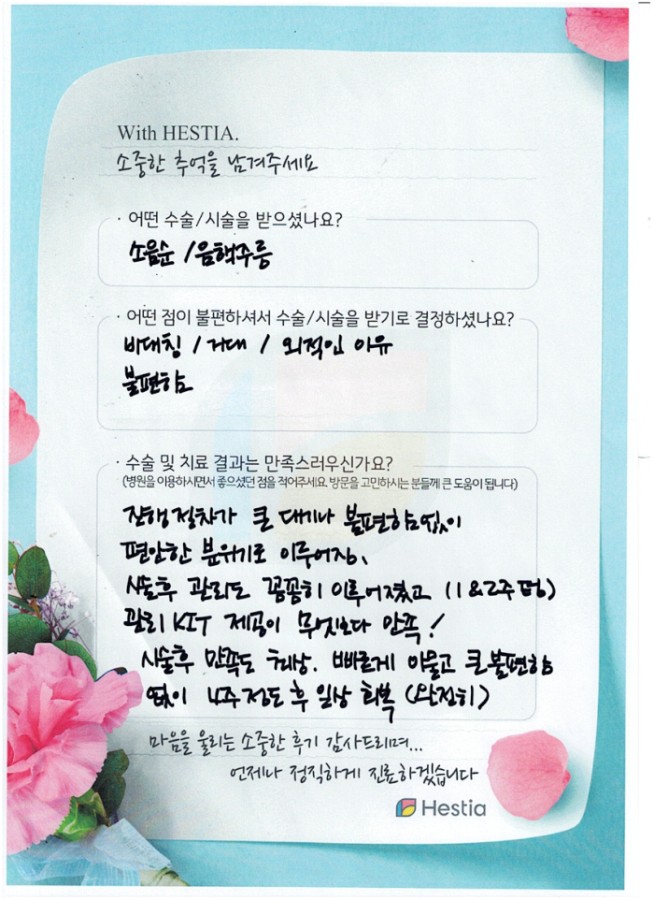 With HESTIA.
소중한 추억을 남겨주세요
· 어떤 수술/시술을 받으셨나요?
소음순 / 음핵주름
· 어떤 점이 불편하셔서 수술/시술을 받기로 결정하셨나요?
비대칭 / 거대 / 외적인 이유
불편함
· 수술 및 치료 결과는 만족스러우신가요?
(병원을 이용하시면서 좋으셨던 점을 적어주세요. 방문을 고민하시는 분들께 큰 도움이 됩니다)
진행절차가 큰 대기나 불편함 없이
편안한 분위기로 이루어짐.
시술후 관리도 꼼꼼히 이루어졌고 (1&2주
관리 KIT 제공이 무엇보다 만족!
시술후 만족도 최상. 빠르게 아물고 큰 불편함
없이 4주 정도 후 일상 회복 (완전히)
마음을 울리는 소중한 후기 감사드리며...
언제나 정직하게 진료하겠습니다
Hestia